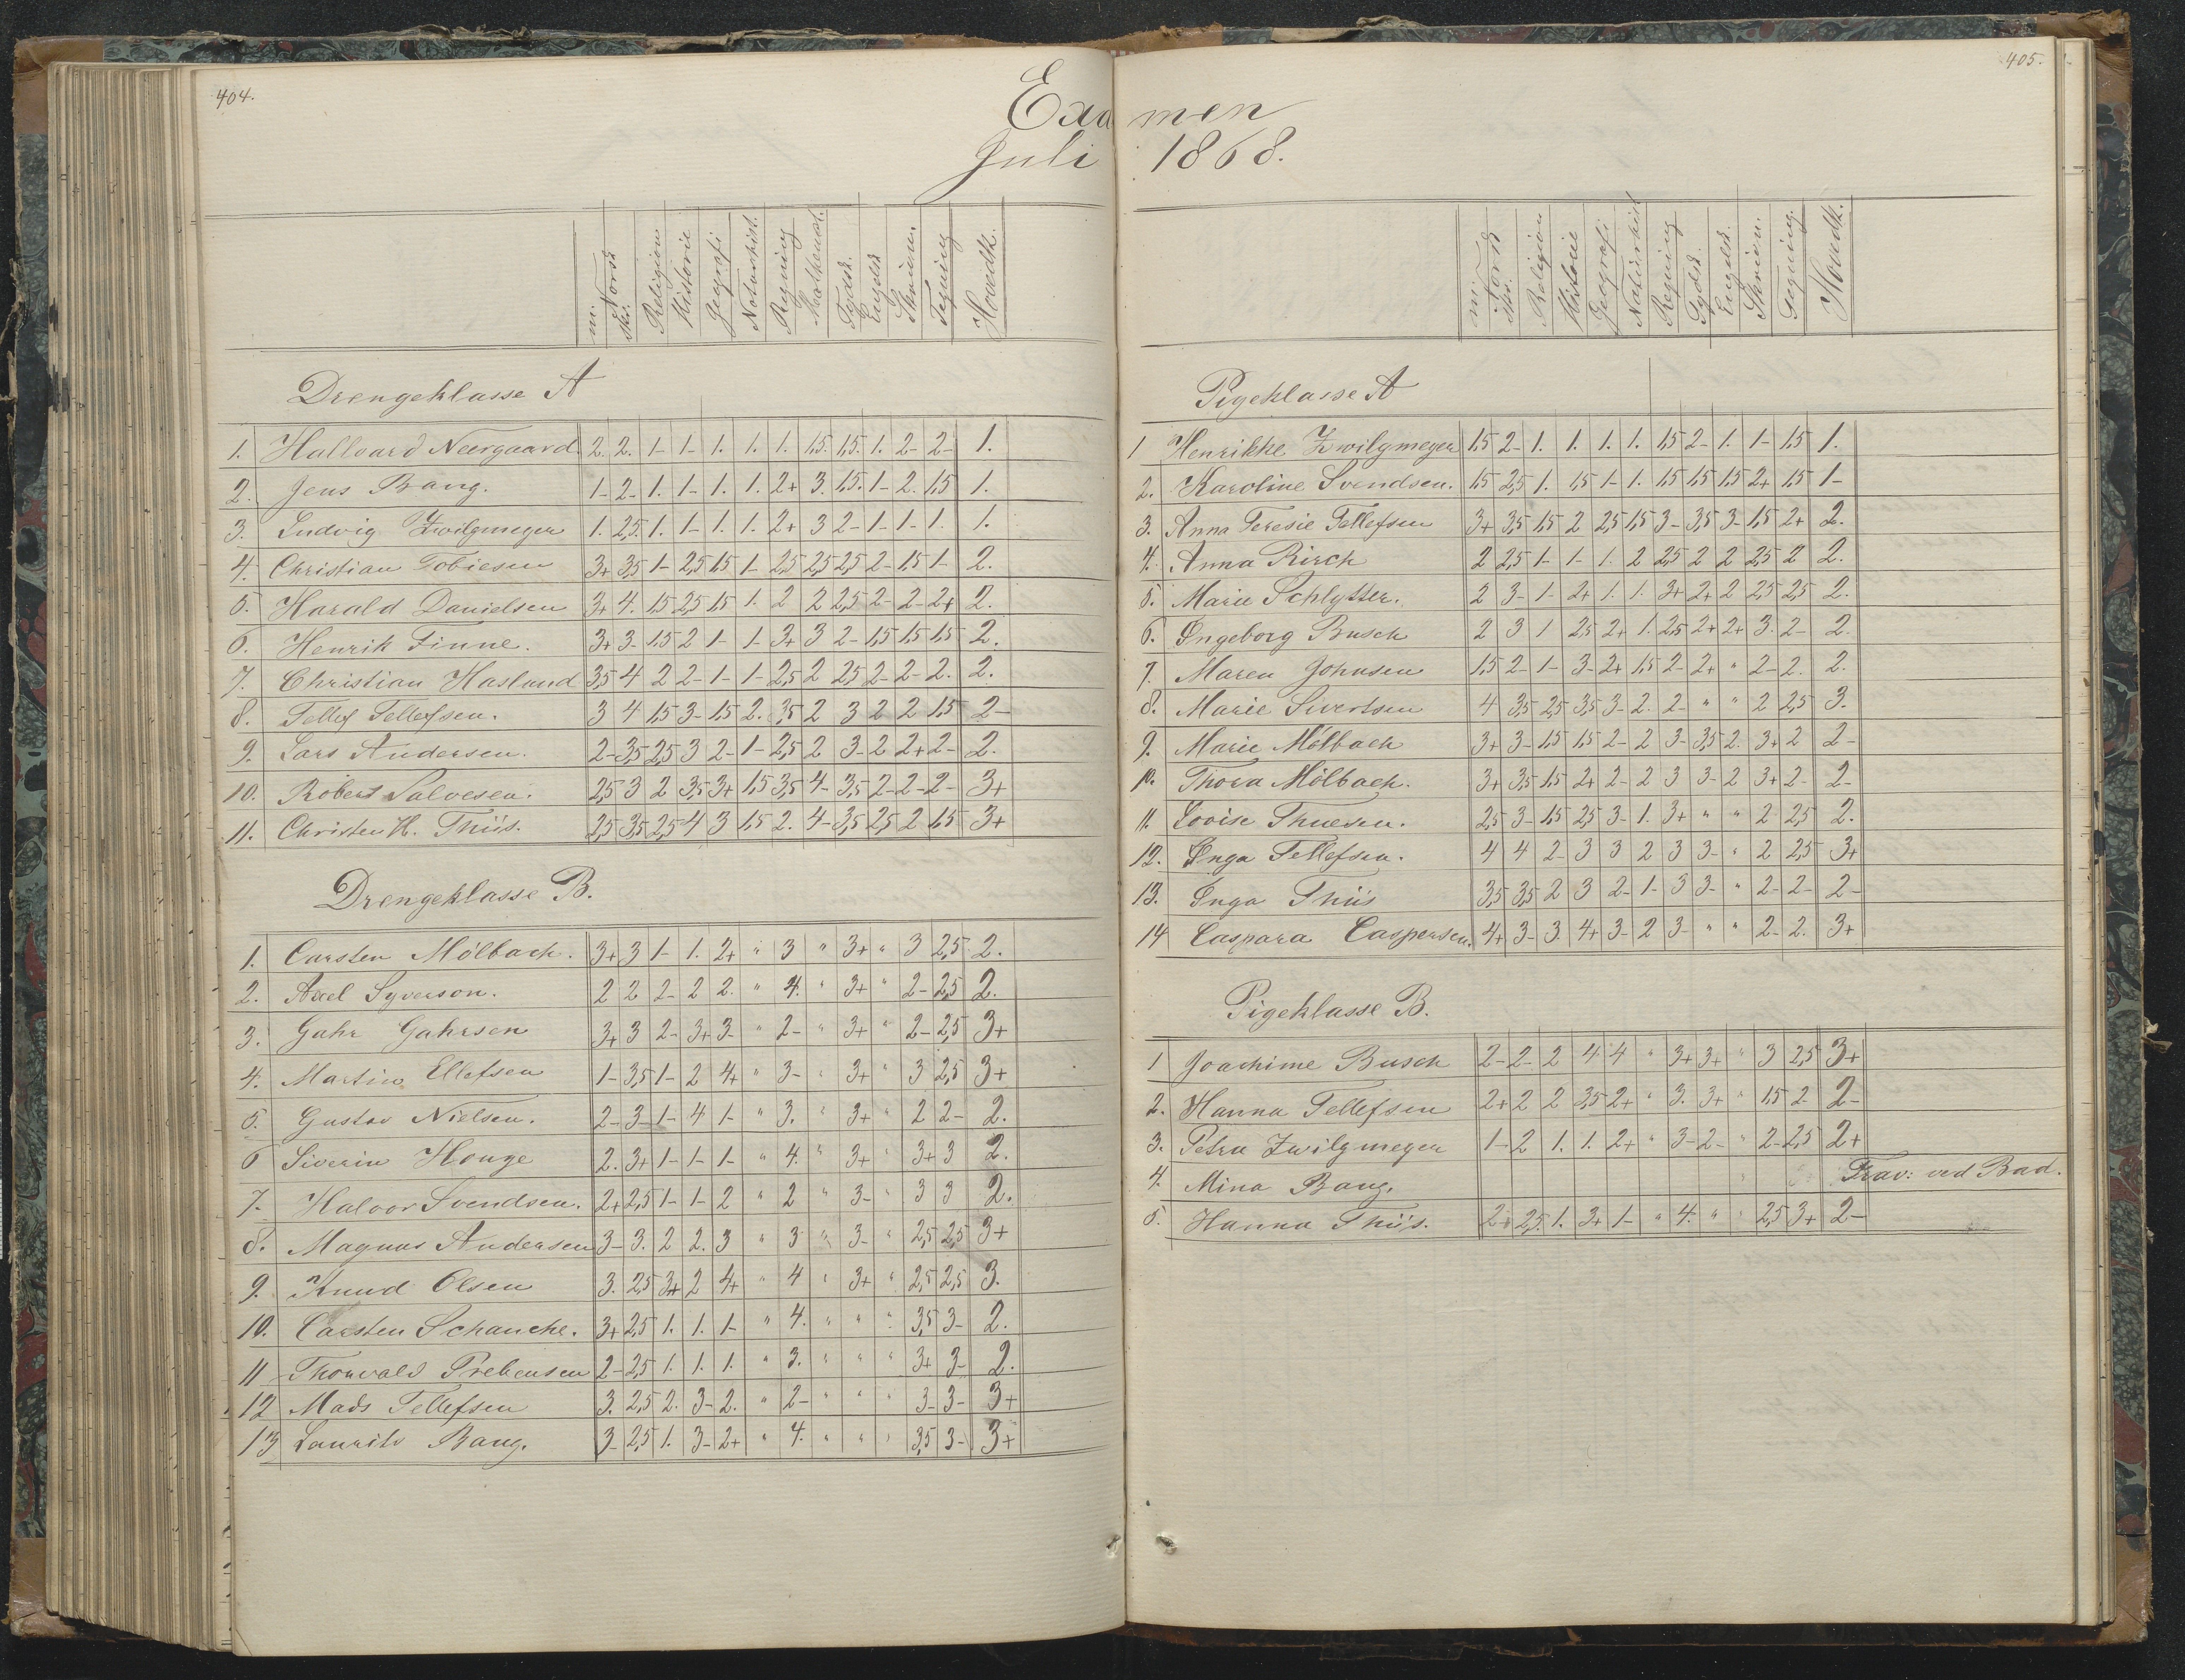 404.
Examen
Juli 1868.
m. Norsk skr. Religion Historie Geografi Naturhist. Regning Mathemat. Tydsk Engelsk Skrivn. Tegning Hovedk.
Drengeklasse A
1. Hallvard Neergaard. 2. 2. 1- 1- 1. 1. 1. 1,5. 1,5. 1. 2- 2- 1.
2. Jens Bang. 1- 2- 1. 1- 1. 1. 2+ 3. 1,5. 1- 2. 1,5 1.
3. Ludvig Zwilgmeyer 1. 2,5. 1. 1- 1. 1. 2+ 3 2- 1- 1- 1. 1.
4. Christian Tobiesen 3+ 3,5 1- 2,5 1,5 1- 2,5 2,5 2,5 2- 1,5 1- 2.
5. Harald Danielsen 3+ 4. 1,5 2,5 1,5 1. 2 2 2,5 2- 2- 2+ 2.
6. Henrik Finne. 3+ 3- 1,5 2 1- 1- 3+ 3 2- 1,5 1,5 1,5 2.
7. Christian Hasland 3,5 4 2 2- 1- 1- 2,5 2 2,5 2- 2- 2. 2.
8. Tellef Tellefsen. 3 4 1,5 3- 1,5 2. 3,5 2 3 2 2 1,5 2-
9. Lars Andersen. 2- 3,5 2,5 3 2- 1- 2,5 2 3- 2 2+ 2- 2.
10. Robert Salvesen. 2,5 3 2 3,5 3+ 1,5 3,5 4- 3,5 2- 2- 2- 3+
11. Christen H. Thiis. 2,5 3,5 2,5 4 3 1,5 2. 4- 3,5 2,5 2 1,5 3+
Drengeklasse B.
1. Carsten Mölbach. 3+ 3 1- 1. 2+ " 3 " 3+ " 3 2,5 2.
2. Axel Syverson. 2 2 2- 2 2. " 4. " 3+ " 2- 2,5 2.
3. Gahr Gahrsen 3+ 3 2- 3+ 3- " 2- " 3+ " 2- 2,5 3+
4. Martin Ellefsen 1- 3,5 1- 2 4+ " 3- " 3+ " 3 2,5 3+
5. Gustav Nielsen. 2- 3- 1- 4 1- " 3. " 3+ " 2 2- 2.
6 Siverin Houge 2. 3+ 1- 1- 1- " 4. " 3+ " 3+ 3 2.
7. Halvor Svendsen. 2+ 2,5 1- 1- 2 " 2 " 3- " 3 3 2.
8. Magnus Andersen 3- 3. 2 2. 3 " 3 " 3- " 2,5 2,5 3+
9. Knud Olsen 3. 2,5 3+ 2 4+ " 4 " 3+ " 2,5 2,5 3.
10. Carsten Schanche. 3+ 2,5 1. 1. 1- " 4. " " " 3,5 3- 2.
11 Thorvald Prebensen 2- 2,5 1. 1. 1. " 3. " " " 3+ 3- 2.
12 Mads Tellefsen 3. 2,5 2. 3- 2. " 2- " " " 3- 3- 3+
13 Laurits Bang. 3- 2,5 1. 3- 2+ " 4. " " " 3,5 3- 3+
405.
m. Norsk skr. Religion Historie Geografi Naturhist Regning Tydsk. Engelsk. Skrivn. Tegning. Hovedk.
Pigeklasse A
1 Henrikke Zwilgmeyer 1,5 2- 1. 1. 1. 1. 1,5 2- 1. 1- 1,5 1.
2. Karoline Svendsen. 1,5 2,5 1. 1,5 1- 1. 1,5 1,5 1,5 2+ 1,5 1-
3. Anna Teresie Tellefsen 3+ 3,5 1,5 2 2,5 1,5 3- 3,5 3- 1,5 2+ 2.
4. Anna Kirch 2 2,5 1- 1- 1. 2 2,5 2 2 2,5 2 2.
5. Marie Schlytter. 2 3- 1- 2+ 1. 1. 3+ 2+ 2 2,5 2,5 2.
6. Ingeborg Busch 2 3 1 2,5 2+ 1. 2,5 2+ 2+ 3. 2- 2.
7. Maren Johnsen 1,5 2- 1- 3- 2+ 1,5 2- 2+ " 2- 2. 2.
8. Marie Sivertsen 4 3,5 2,5 3,5 3- 2. 2- " " 2 2,5 3.
9. Marie Mölbach 3+ 3- 1,5 1,5 2- 2 3- 3,5 2. 3+ 2 2-
10. Thora Mölbach. 3+ 3,5 1,5 2+ 2- 2 3 3- 2 3+ 2- 2-
11. Lovise Thuesen. 2,5 3- 1,5 2,5 3- 1. 3+ " " 2 2,5 2.
12. Inga Tellefsen. 4 4 2- 3 3 2 3 3- " 2 2,5 3+
13. Inga Thiis 3,5 3,5 2 3 2- 1- 3 3- " 2- 2- 2-
14 Caspara Caspersen. 4+ 3- 3. 4+ 3- 2 3- " " 2- 2. 3+
Pigeklasse B.
1 Joachime Busch 2- 2- 2 4. 4 " 3+ 3+ " 3 2,5 3+
2. Hanna Tellefsen 2+ 2 2 3,5 2+ " 3. 3+ " 1,5 2- 2-
3. Petra Zwilgmeyer 1- 2 1. 1. 2+ " 3- 2- " 2- 2,5 2+
4. Mina Bang. Frav: ved Bad.
5. Hanna Thiis. 2+ 2,5. 1. 3+ 1- " 4. " " 2,5 3+ 2-